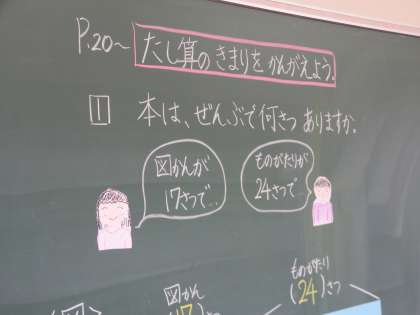 P.20～
たし算のきまりをかんがえよう。
1 本は、ぜんぶで何さつありますか。
図かんが
17さつで…
ものがたりが
24さつで…
図かん
(17)
ものがたり
(24)さつ